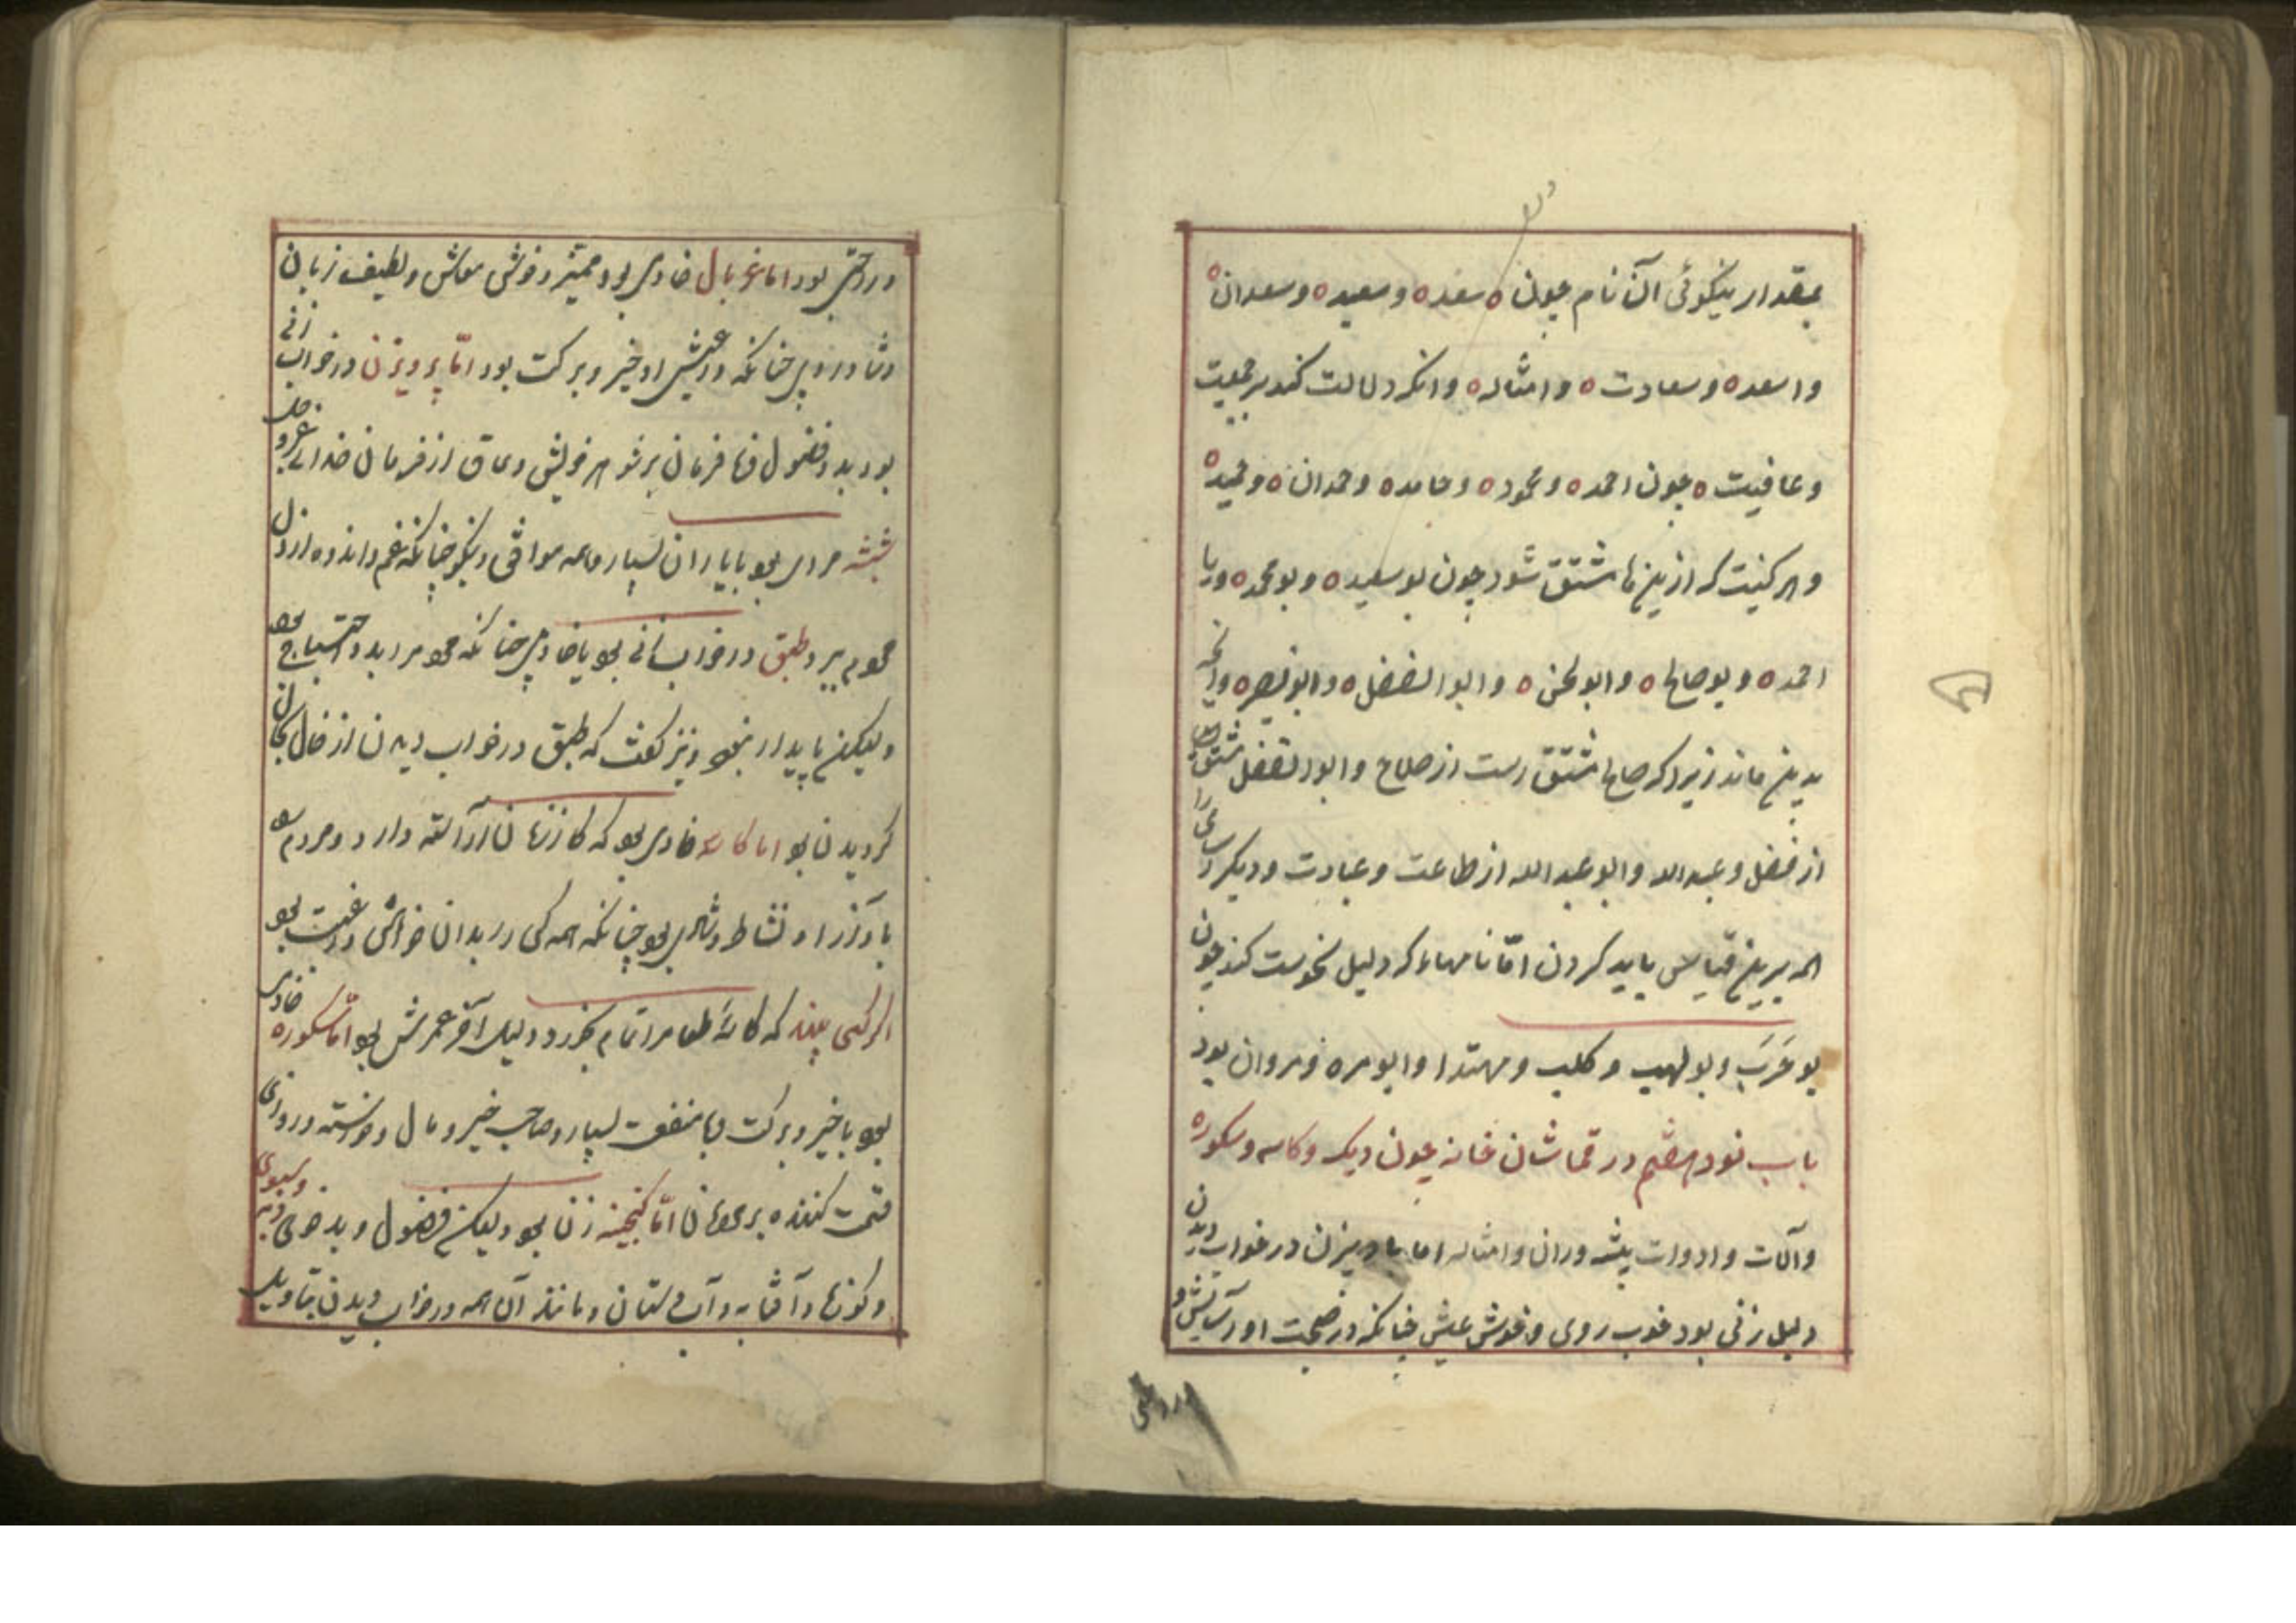 بمقدار نیکوئی آن نام چون سعد و سعید و سعدان
و اسعد و سعادت و امثاله و انکه دلالت کند بر جمعیت
و عافیت چون احمد و محمود و حامد و حمدان و حمید
و هر کنیت که ازین نامها مشتق شود چون بوسعید و بومحمد و یا
احمد و بوصالح و ابولحسن و ابوالفضل و ابونصر و آنچه
بدین ماند زیرا که صالح مشتق است از صلاح و ابوالفضل مشتق
از فضل و عبدالله و ابوعبدالله از طاعت و عبادت و دیگر
همه برین قیاس باید کردن امّا نامهاء که دلیل نحوست کند چون
بوحَرَب و بولهب و کلب و مهتدا و ابومره و مروان بود
باب نود هشتم در قماشات خانه چون دیک و کاسه و سکوره
وآلات و ادوات پیشه وران و امثاله اما بادبیزن در خواب دیدن
دلیل زنی بود خوب روی و خوش عیش چنانکه در صحبت او آسایش و
در راحتی
در راحتی بود اما غربال خادمی بود ممیز و خوش معاش و لطیف زبان
چنانکه در عیش او خیر و برکت بود امّا پرویزن در خواب زنی
بود بد و فضول و نافرمان بر شوهر خویش و عاق از فرمان خدای عزوجل
شیشه مرادی بود با یاران بسیار و همه موافق و نیکو چنانکه غم و اندوه از دل
محو می برد طبق در خواب زنی بود یا خادمی چنانکه محرم را بدو احتیاج بود
ولیکن پایدار نبود و نیز گفت که طبق در خواب دیدن از حال بحال
کردیدن بود اما کاسه خادمی بود که کار زنان را آراسته دارد و مردم
با و از او نشاط و شادی بود چنانکه همه کس را بدان خواهش و رغبت بود
اگر کسی بیند که کاسهٔ طعام را تمام بخورد دلیل آخر عمرش بود امّا سکوره خادمی
بود با خیر و برکت و با منفعت بسیار و صاحب خیر و مال و خواسته و روزی
قسمت کننده بر عیالان امّا گنجینه زن بود ولیکن فضول و بدخوی
وکوزها و آفتابه و آب دستان و مانند آن همه در خواب دیدن بتأویل